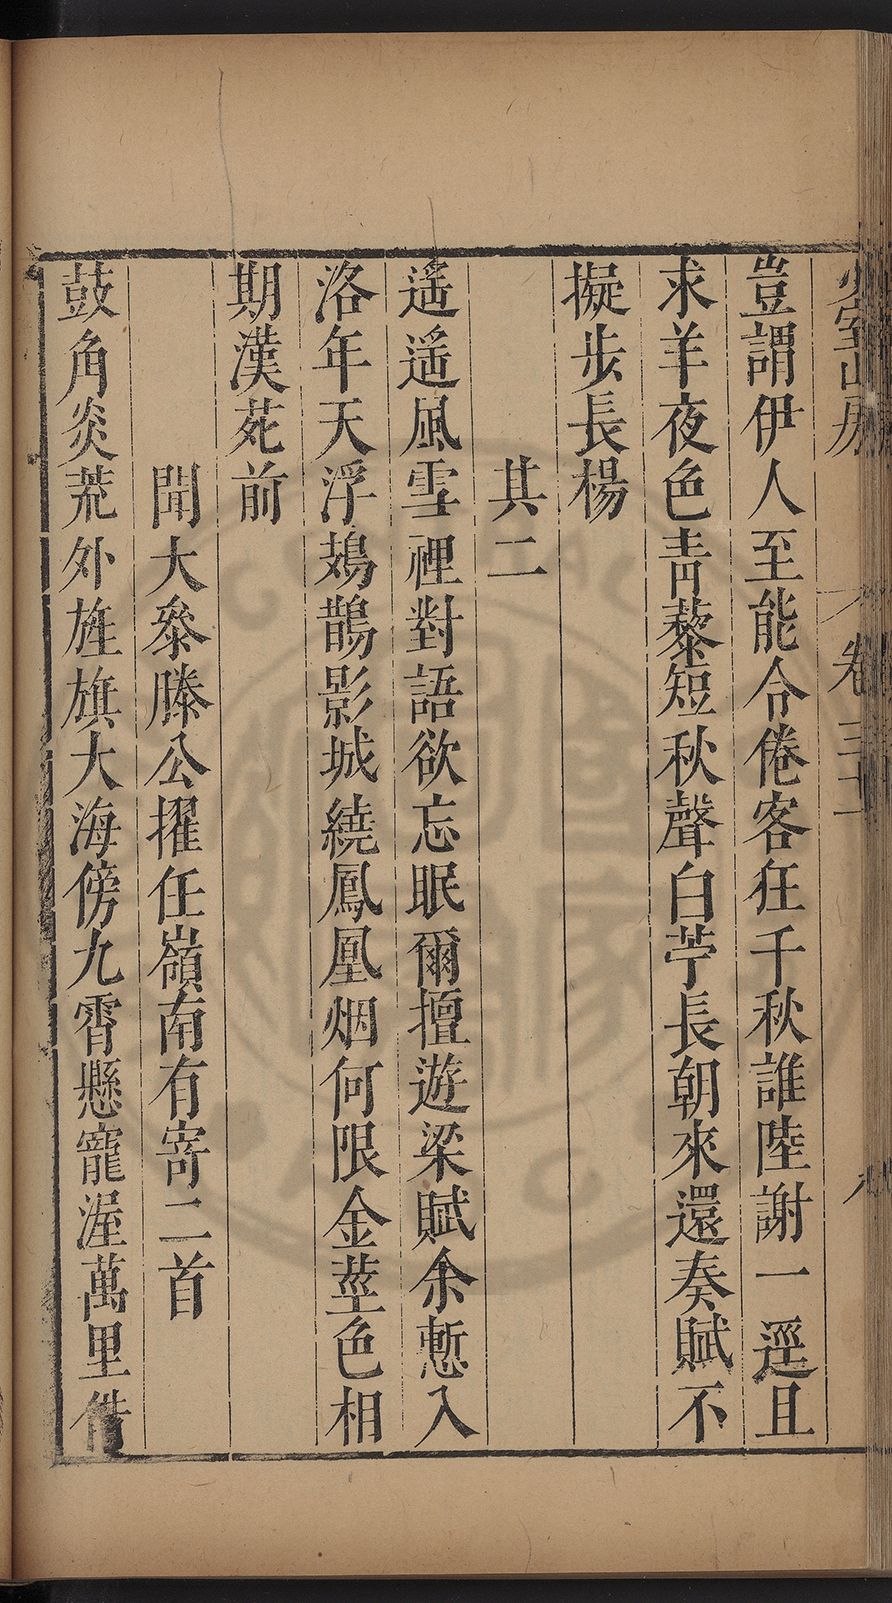 少室山房 卷三十二 八
豈謂伊人至能令倦客狂千秋誰陸謝一逕且
求羊夜色青藜短秋聲白苧長朝來還奏賦不
擬步長楊
其二
遥遥風雪裡對語欲忘眠爾擅遊梁賦余慙入
洛年天浮鳷鵲影城繞鳳凰烟何限金莖色相
期漢苑前
聞大叅滕公擢任嶺南有寄二首
鼓角炎荒外旌旗大海傍九霄懸寵渥萬里借